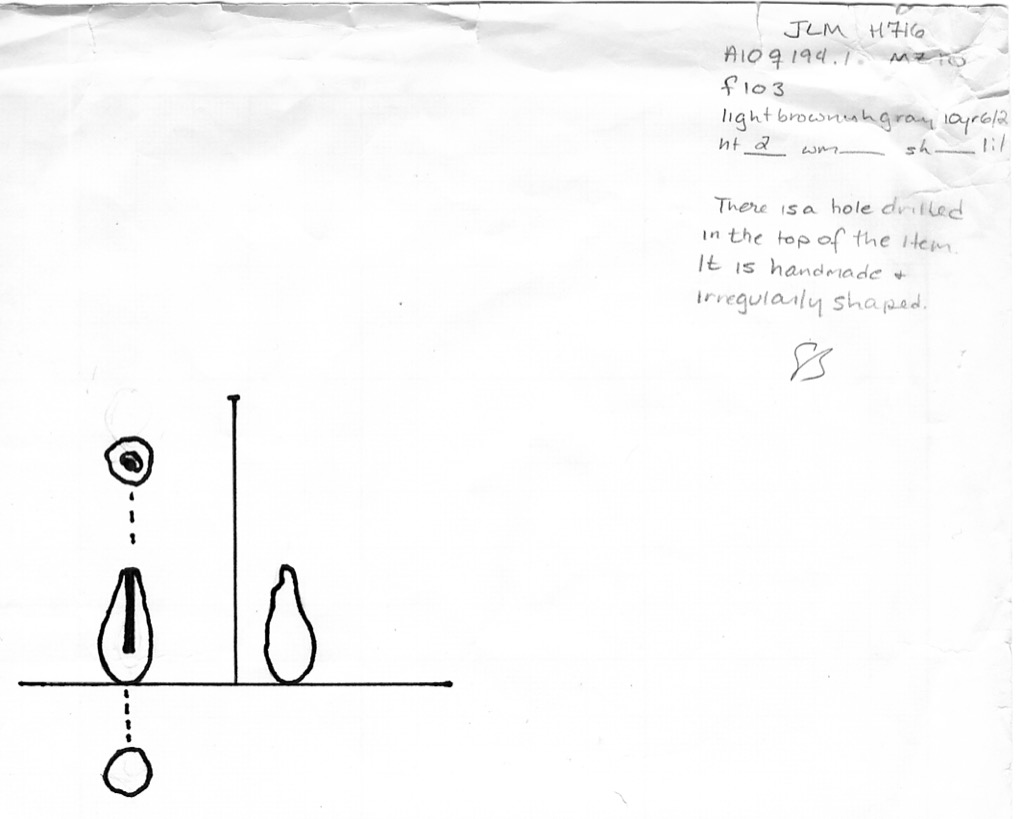 JLM H716
A109194.1.
f103
lightbrownishgray 10yr6/2
ht 2 wm___ sh___ 1:1
There is a hole drilled
in the top of the item.
It is handmade +
irregularly shaped.